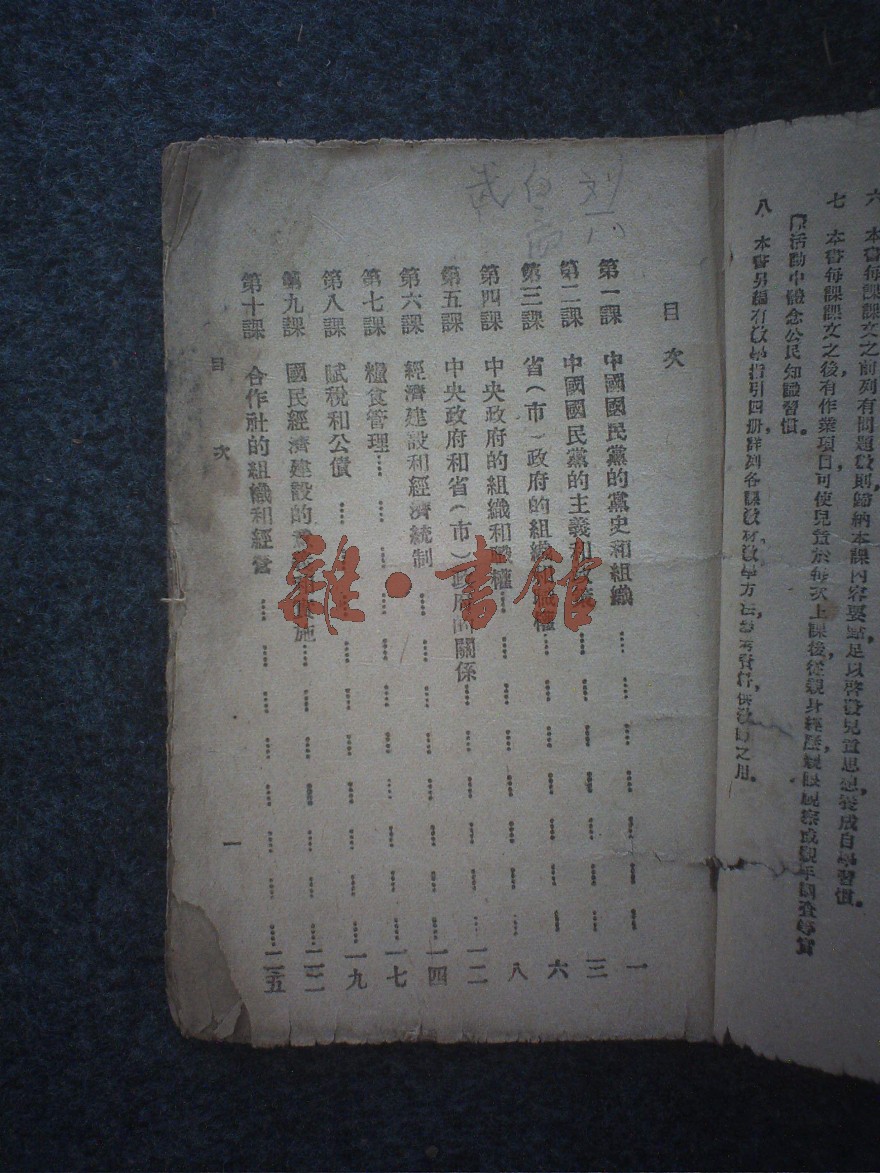 六 本書每課課文之前列有問題數則歸納本課內容要點足以啓發兒童思想，養成自學習慣。
七 本書每課課文之後有作業項目可使兒童於每次上課後從親身經歷
活動中體念公民知識習慣。
八 本書另編有教學指引四冊詳列各課教材教學方法
目次
第一課 中國國民黨的黨史和組織 一
第二課 中國國民黨的主義和 三
第三課 省（市）政府的組織 六
第四課 中央政府的組織和職權 八
第五課 中央政府和省（市）政府的關係 一二
第六課 經濟建設和經濟統制 一四
第七課 糧食管理 一七
第八課 賦稅和公債 一九
第九課 國民經濟建設的 施 二二
第十課 合作社的組織和經營 二五
目次
一
雜·書館